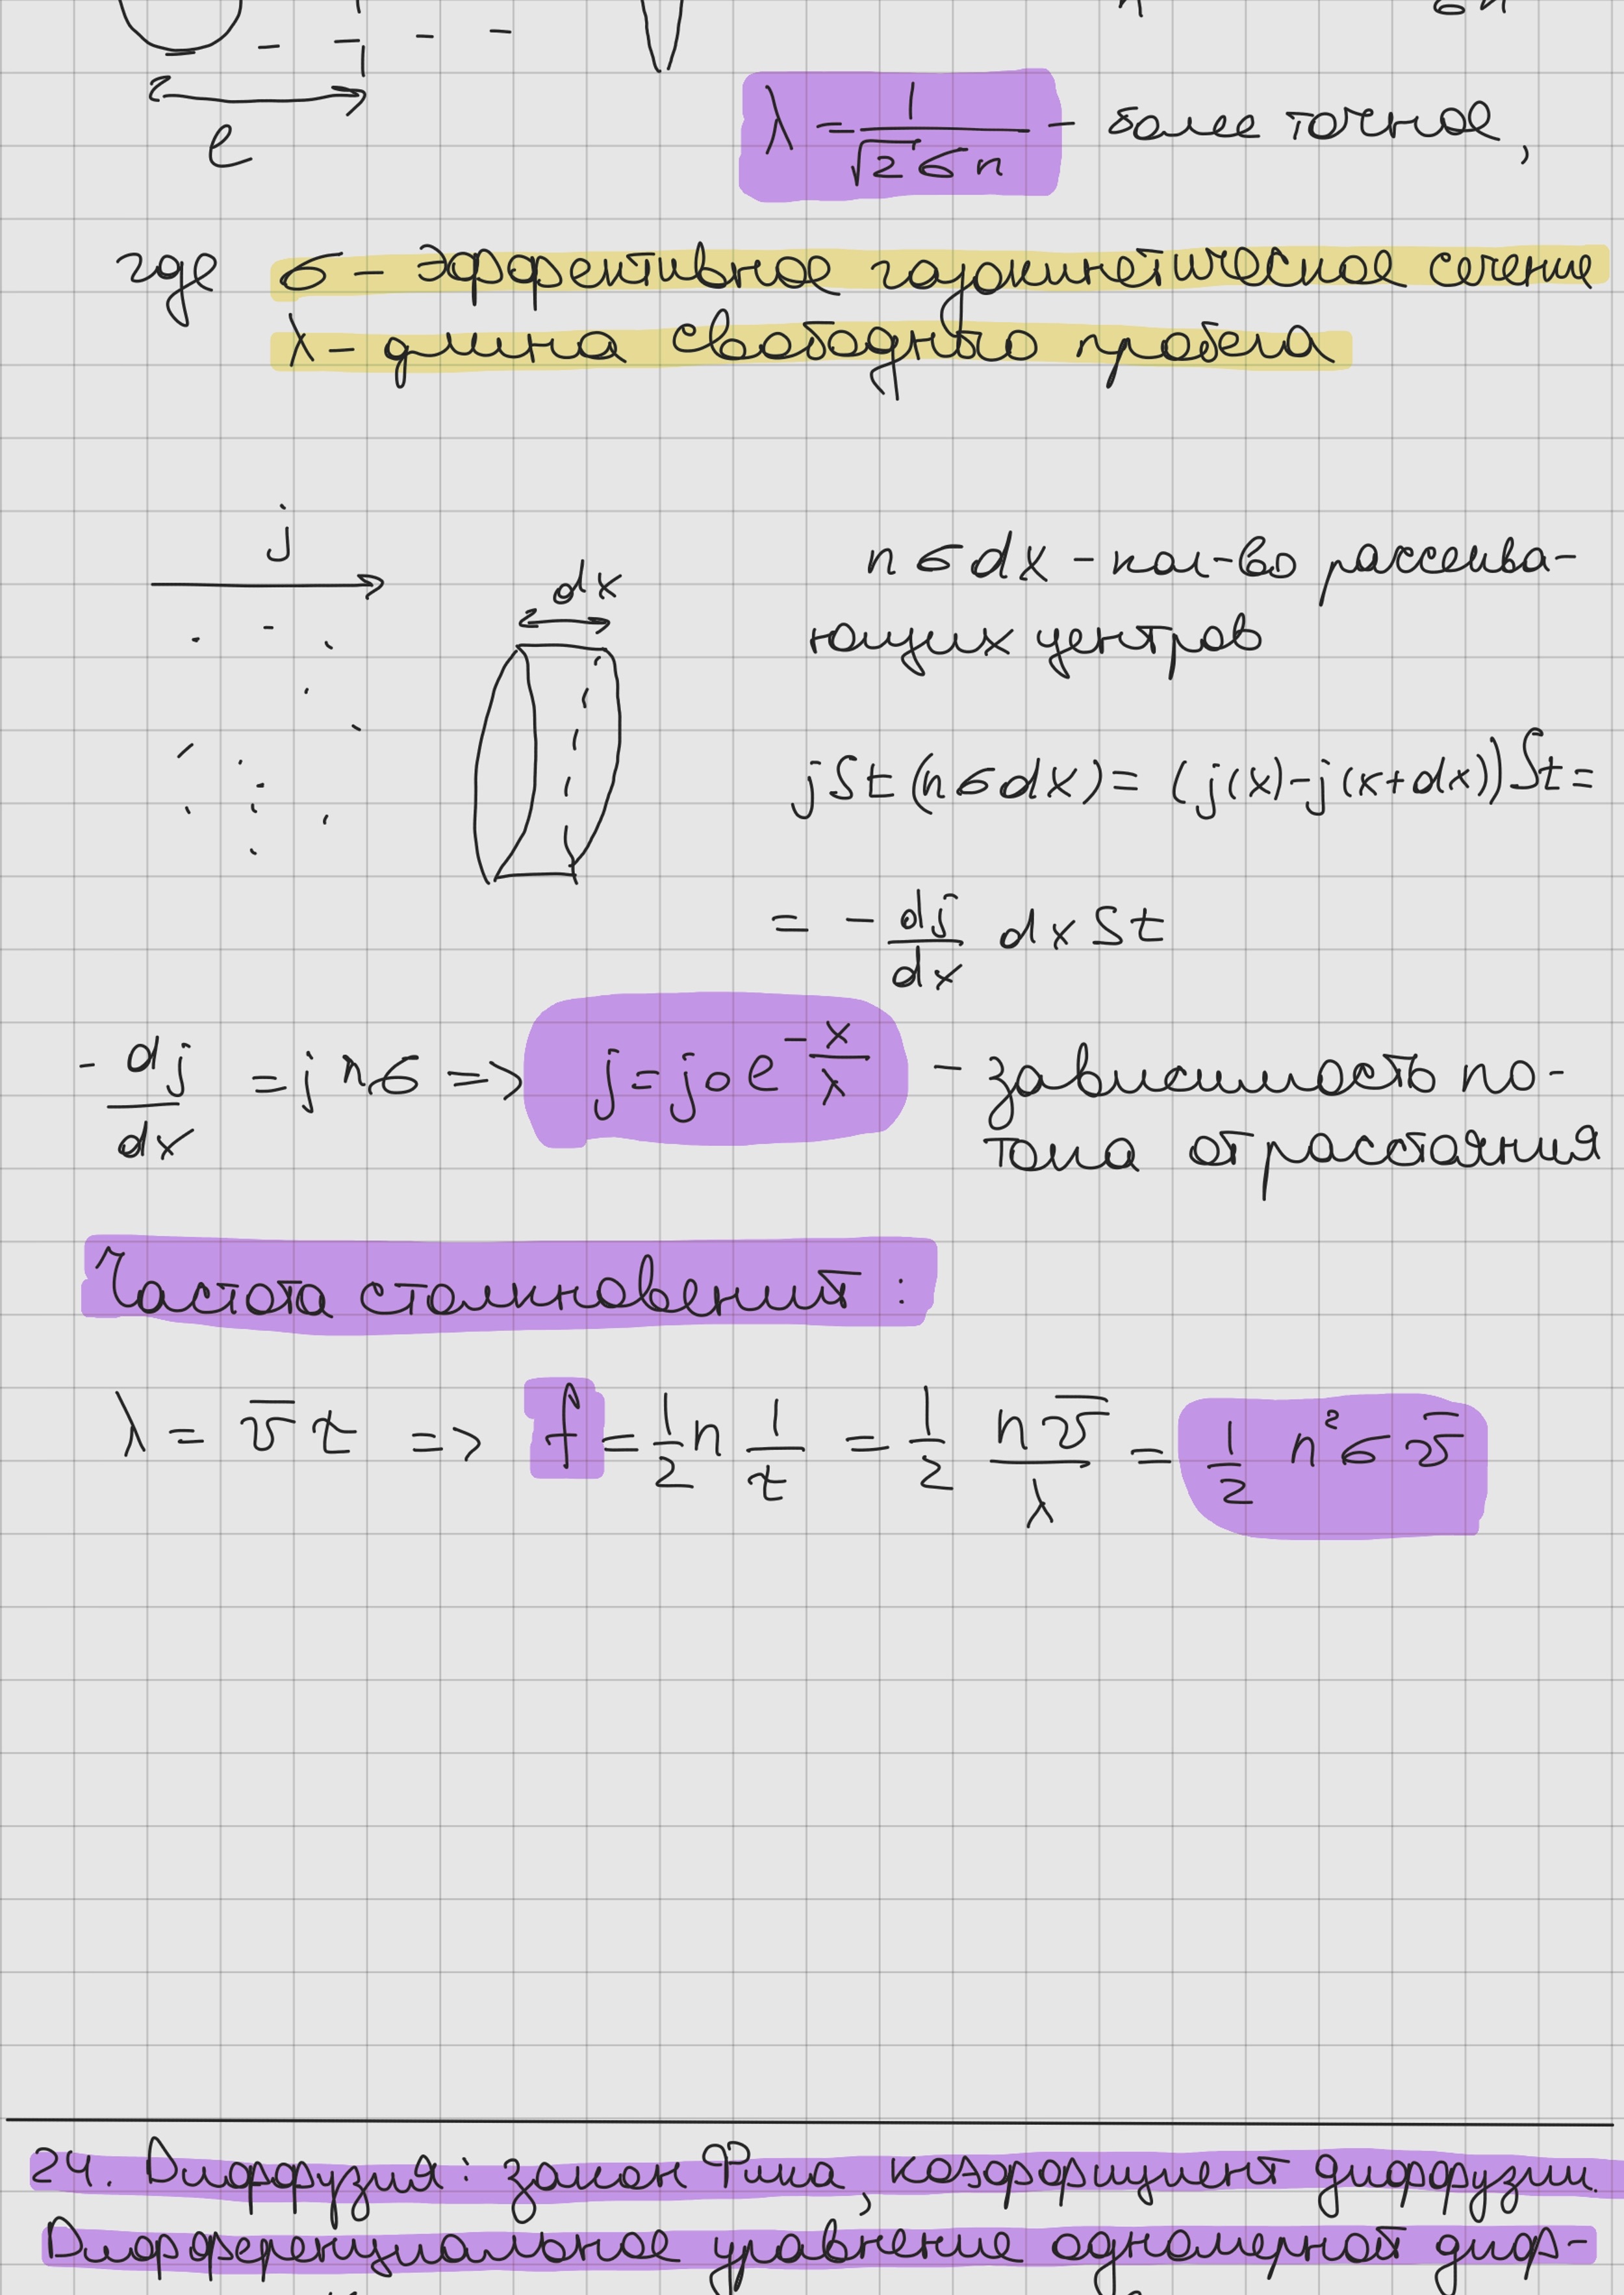 l
λ = 1/(√2 σ n) – более точное,
где σ – эффективное газокинетическое сечение
λ – длина свободного пробега
j
dx
nσdx – кол-во рассеива-
ющих центров
jSt(nσdx) = (j(x)-j(x+dx))St =
= - dj/dx dx St
- dj/dx = jnσ => j = j₀ e^(-x/λ) – зависимость по-
тока от расстояния
Частота столкновений:
λ = v̅ τ => f = 1/2 n 1/τ = 1/2 n v̅/λ = 1/2 n² σ v̅
24. Диффузия: закон Фика, коэффициент диффузии.
Дифференциальное уравнение одномерной диф-